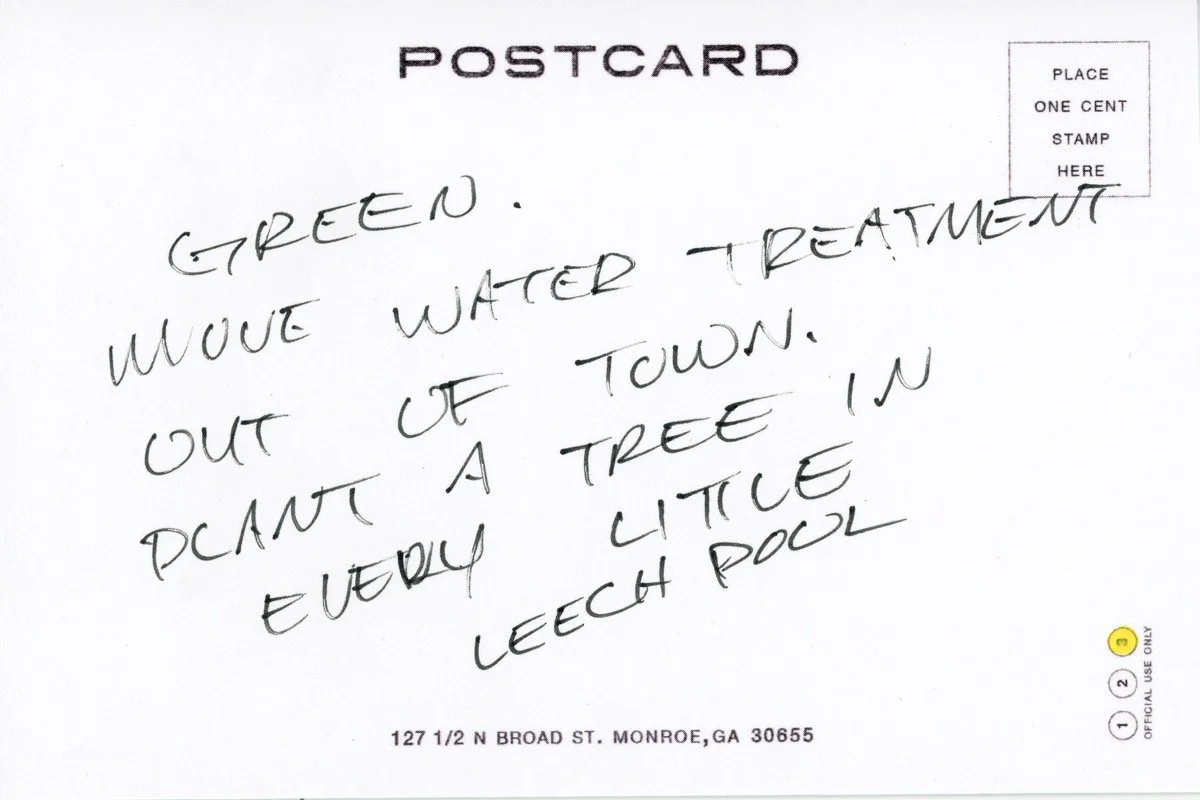 POSTCARD
PLACE
ONE CENT
STAMP
HERE
GREEN.
MOVE WATER TREATMENT
OUT OF TOWN.
PLANT A TREE IN
EVERY LITTLE
LEECH POOL
127 1/2 N BROAD ST. MONROE,GA 30655
1 2 3
OFFICIAL USE ONLY